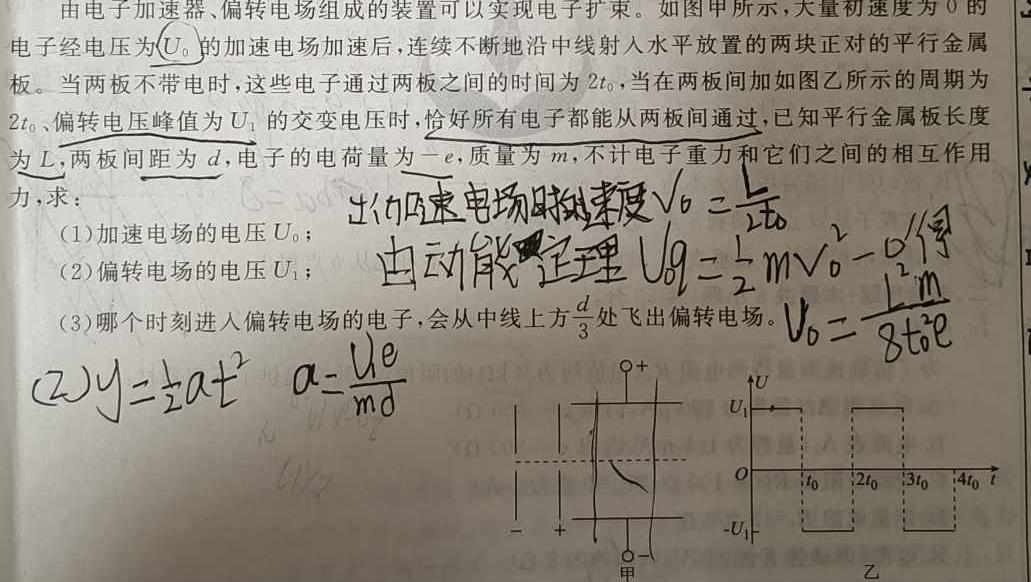 由电子加速器、偏转电场组成的装置可以实现电子扩束。如图甲所示,大量初速度为0的
电子经电压为U₀的加速电场加速后,连续不断地沿中线射入水平放置的两块正对的平行金属
板。当两板不带电时,这些电子通过两板之间的时间为2t₀,当在两板间加如图乙所示的周期为
2t₀、偏转电压峰值为U₁的交变电压时,恰好所有电子都能从两板间通过,已知平行金属板长度
为L,两板间距为d,电子的电荷量为-e,质量为m,不计电子重力和它们之间的相互作用
力,求:
(1)加速电场的电压U₀;
(2)偏转电场的电压U₁;
(3)哪个时刻进入偏转电场的电子,会从中线上方d/3处飞出偏转电场。
速电场时 速度V₀=L/2t₀
由动能定理U₀q=1/2mV₀²-0得
U₀=L²m/8t₀²e
(2)y=1/2at² a=U₁e/md
- + + - 甲
U U₁ O -U₁ t₀ 2t₀ 3t₀ 4t₀ t 乙